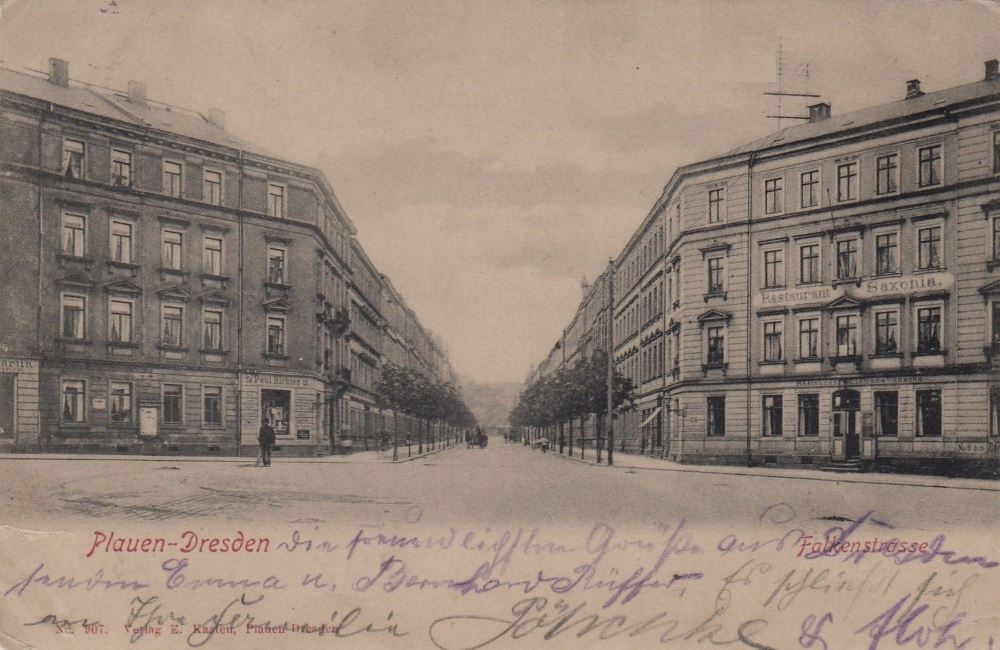 Restaurant Saxonia.
Paul Richter
Plauen-Dresden
Falkenstrasse
die freundlichsten Grüße aus Dresden
senden Emma u. Bernhard Es schließt sich
an Ihre Familie Pötschke &
No. 907. Verlag E. Kasten, Plauen-Dresden